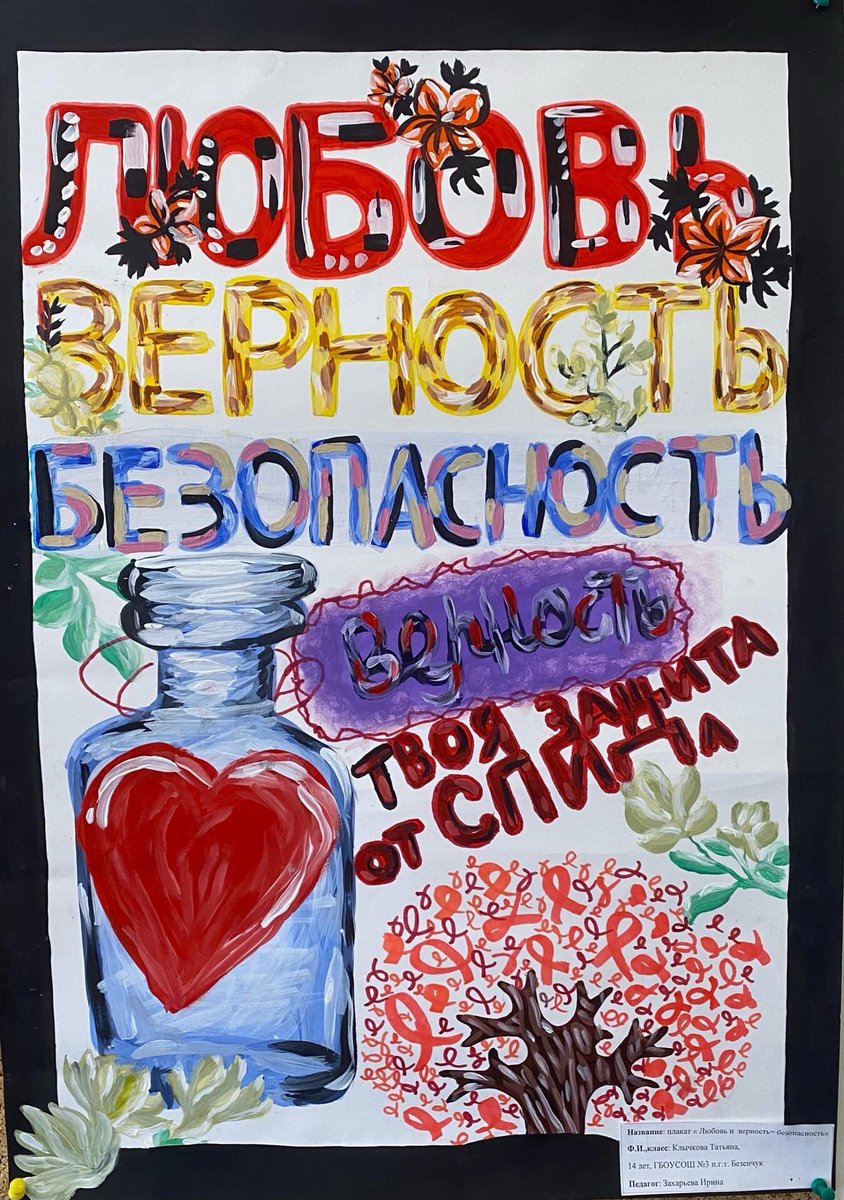 ЛЮБОВЬ
ВЕРНОСТЬ
БЕЗОПАСНОСТЬ
Верность
ТВОЯ ЗАЩИТА
ОТ СПИДА
Название: плакат « Любовь и верность= безопасность»
Ф.И.,класс: Клычкова Татьяна,
14 лет, ГБОУСОШ №3 п.г.т. Безенчук
Педагог: Захарьева Ирина